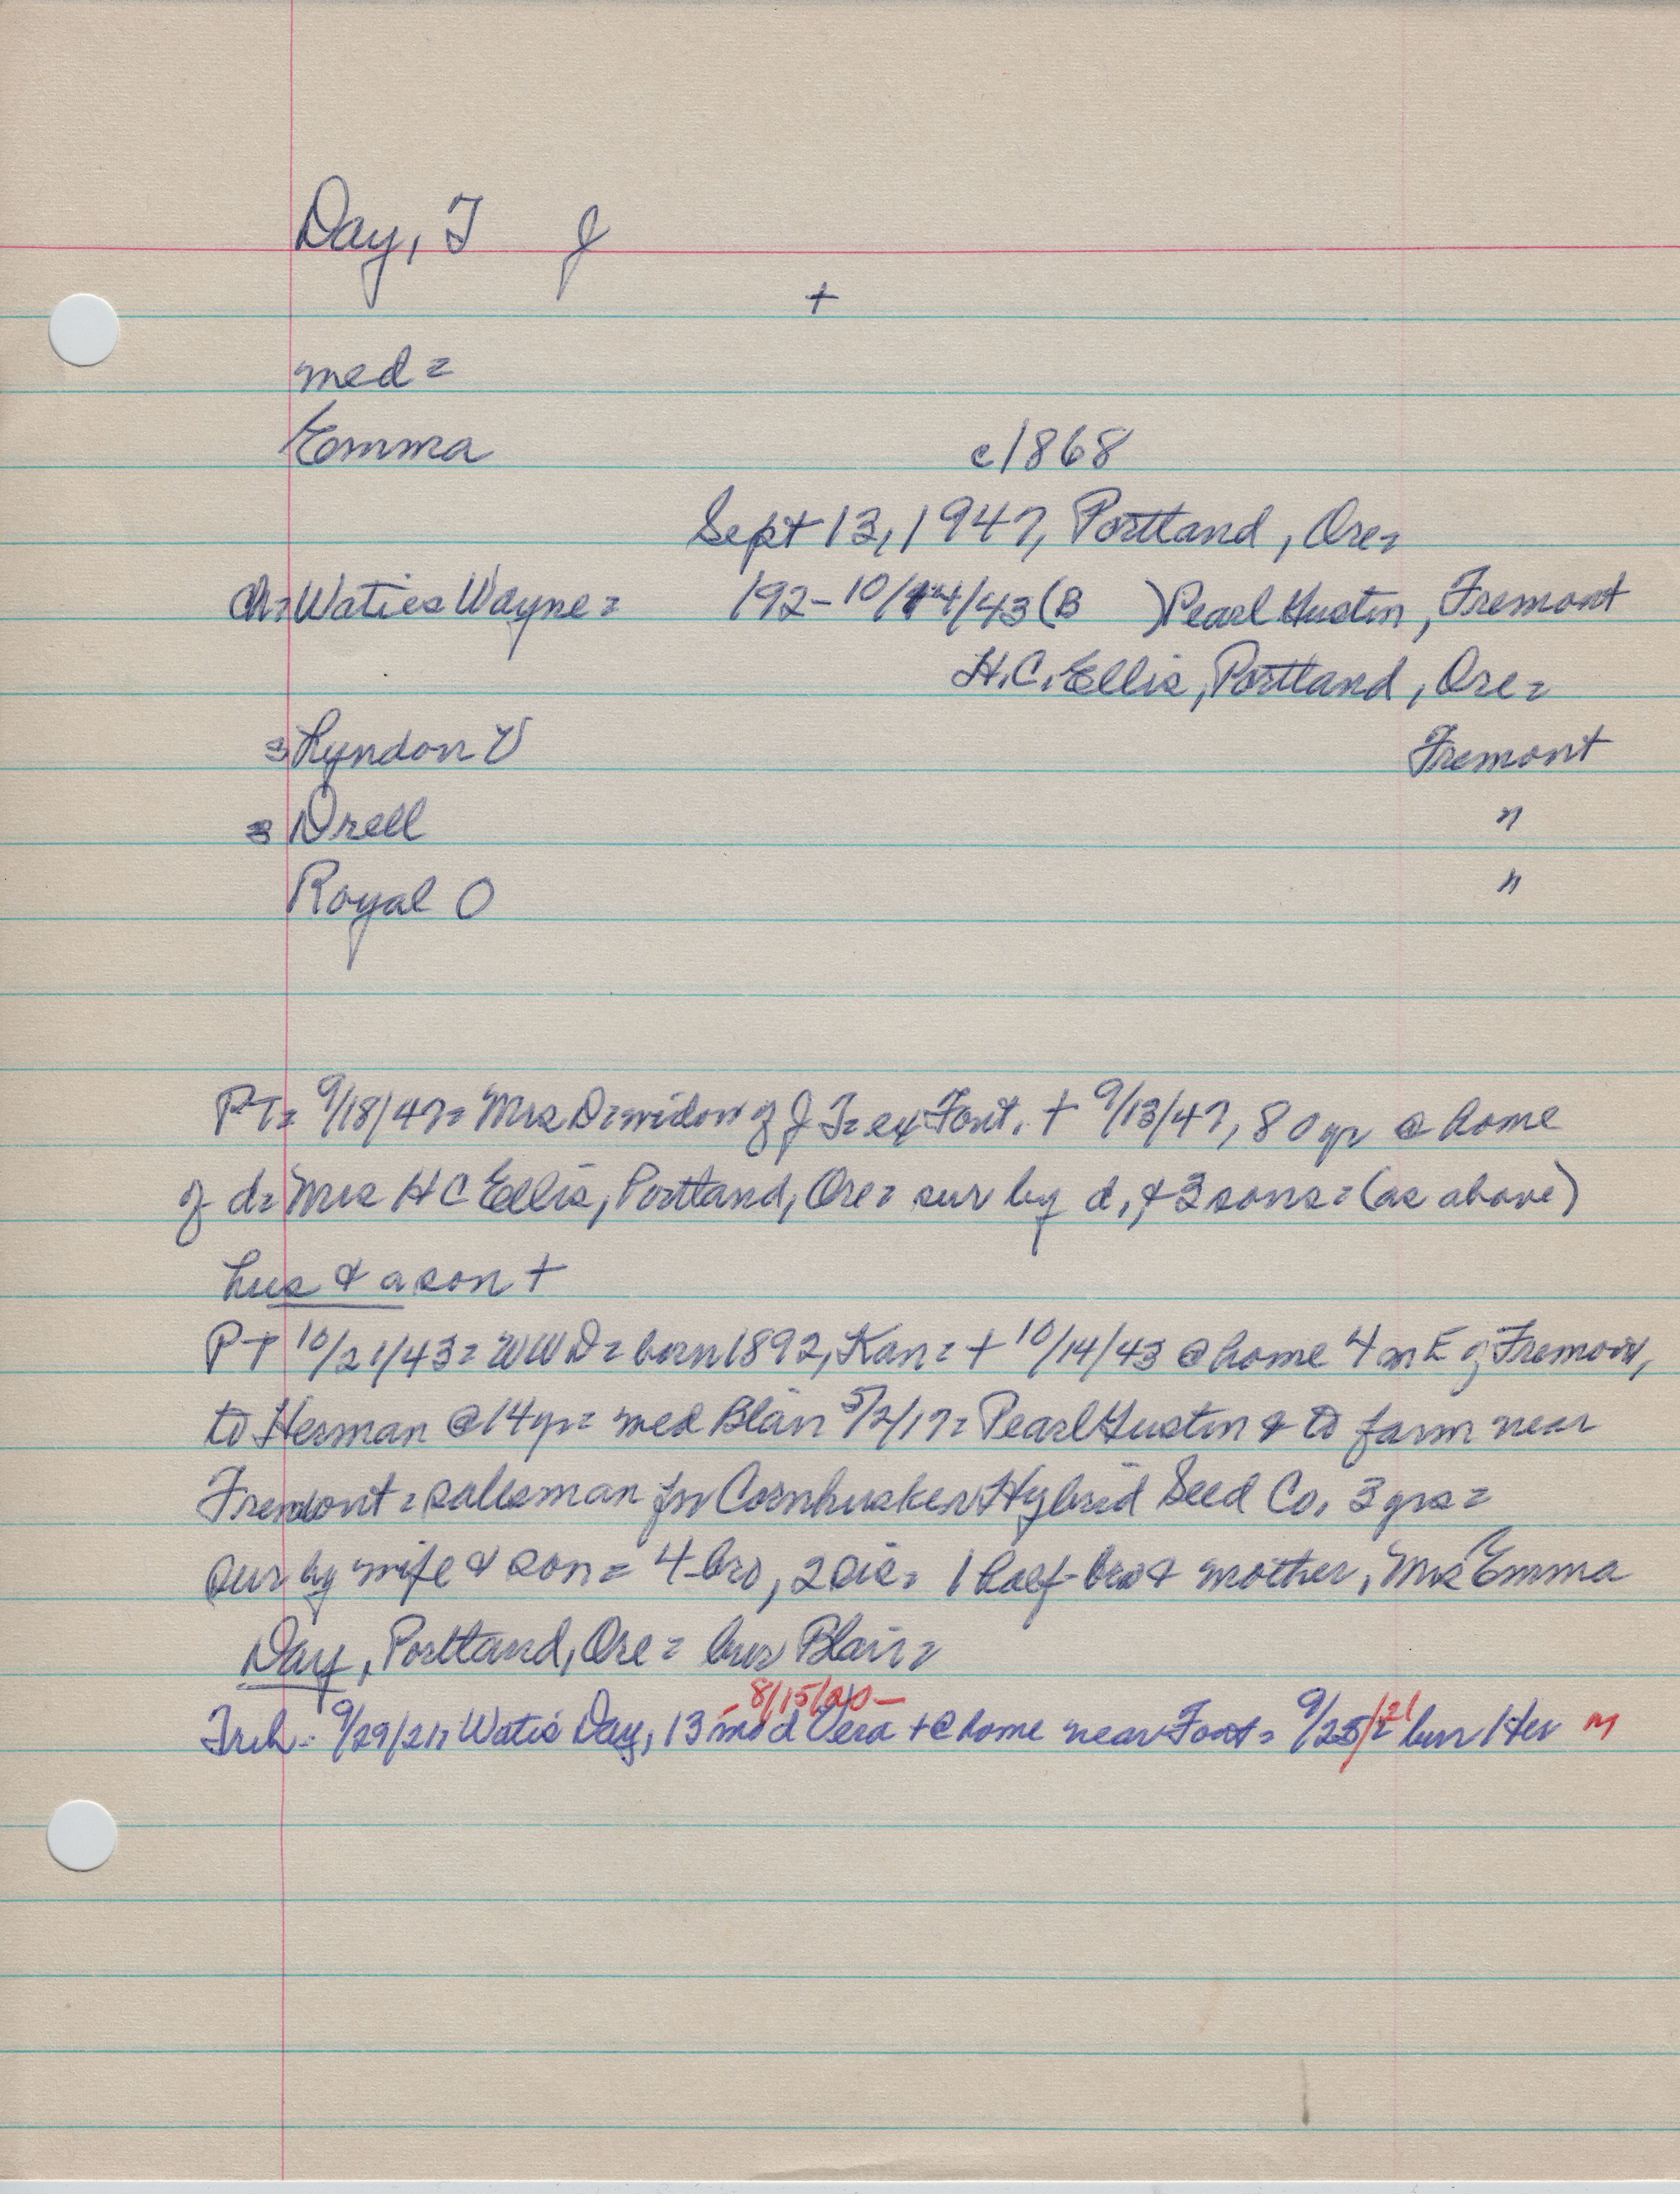 Day, J J
+
med =
Emma c1868
Sept 13, 1947, Portland, Ore =
Ch = Waties Wayne = 192- 10/14/43 (B ) Pearl Hustin, Fremont
H. C. Ellis, Portland, Ore =
3 Lyndon V Fremont
3 Orell "
Royal O "
PT = 9/18/47 = Mrs D = widow of J J = ex Font. + 9/13/47, 80 yr @ home
of d = Mrs H C Ellis, Portland, Ore = sur by d, & 3 sons = (as above)
hus & a son +
PT 10/21/43 = WWD = born 1892, Kan = + 10/14/43 @ home 4 m E of Fremont,
to Herman @ 14 yr = med Blair 5/2/17 = Pearl Hustin & to farm near
Fremont = salesman for Cornhusker Hybrid Seed Co. 3 yrs =
sur by wife & son = 4 bro, 2 sis = 1 half-bro & mother, Mrs Emma
Day, Portland, Ore = bur Blair =
- 8/15/20 -
Trib - 9/29/21, Watis Day, 13 mo d Vera + @ home near Font = 9/25/21 bur Her M